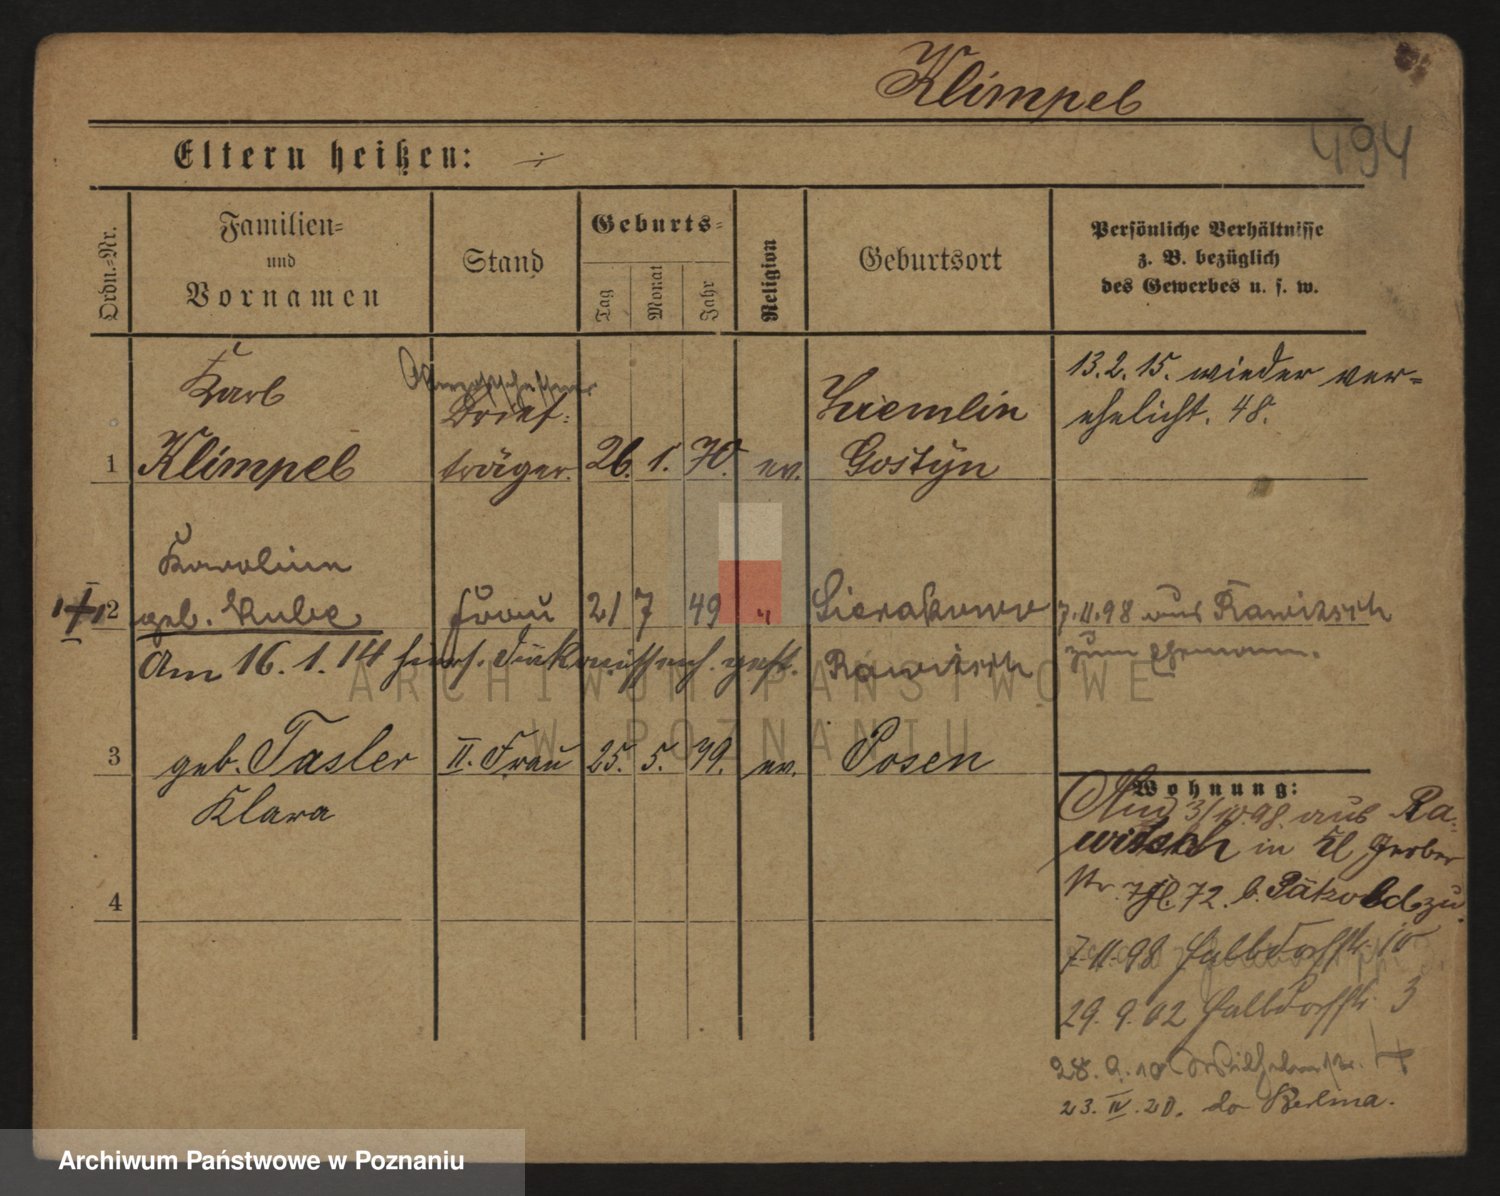 Klimpel
494
Eltern heißen:
Ordn.-Nr.
Familien-
und
Vornamen
Stand
Geburts-
Tag
Monat
Jahr
Religion
Geburtsort
Persönliche Verhältnisse
z. B. bezüglich
des Gewerbes u. s. w.
Karl
Brief-
13.2.15. wieder ver-
ehelicht. 48.
1 Klimpel träger. 26. 1. 70. ev. Gostÿn
Karolina
2 geb. Kube Frau 21 7 49 " Sierakowo 7.11.98 aus Rawitsch
zum Ehemann.
Am 16.1.14 gest. Rawitsch
3 geb. Tasler II. Frau 25. 5. 79. ev. Posen
Klara
Wohnung:
3/10.98. aus Ra-
witsch in Kl Gerber
Str. 72. b. Pätzold zu.
4
7.11.98 10
29.9.02 3
28.9.10
23.IV.20. do Berlina.
ARCHIWUM PAŃSTWOWE
W POZNANIU
Archiwum Państwowe w Poznaniu